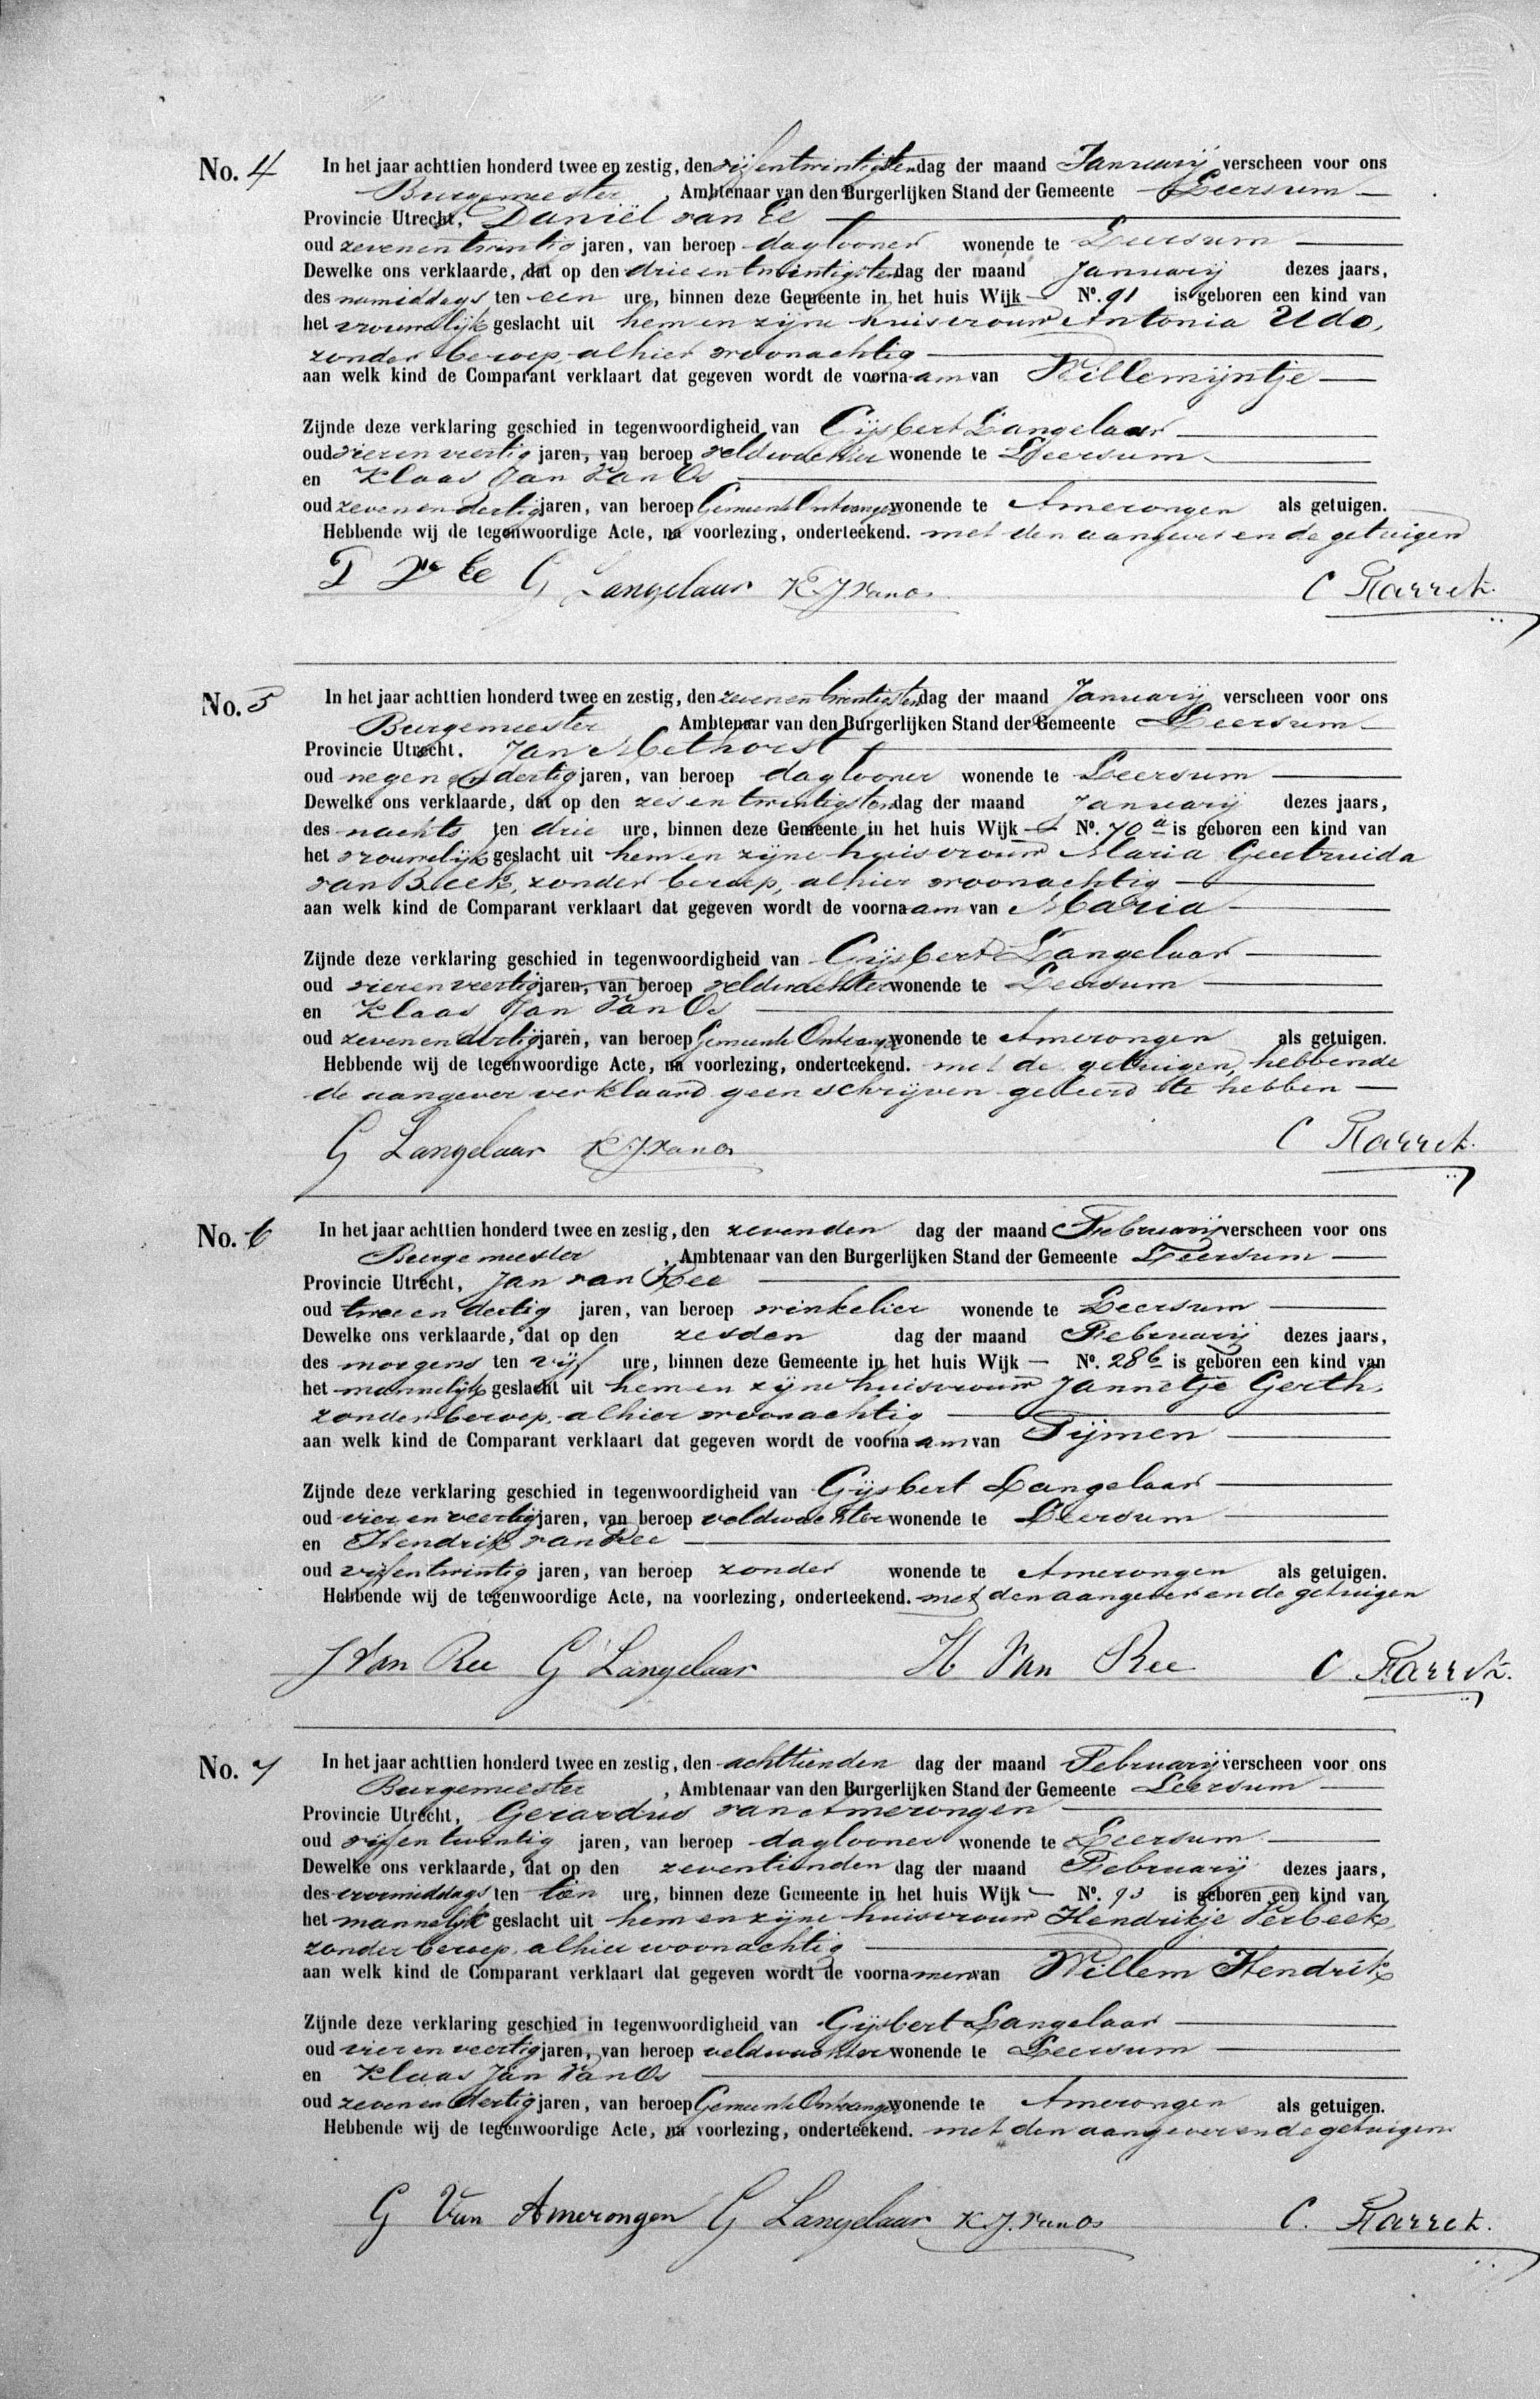 No. 4 In het jaar achttien honderd twee en zestig, den vijfentwintigsten dag der maand Januarij verscheen voor ons
Burgemeester, Ambtenaar van den Burgerlijken Stand der Gemeente Leersum
Provincie Utrecht, Daniël van Ee
oud zevenentwintig jaren, van beroep daglooner wonende te Leersum
Dewelke ons verklaarde, dat op den drieentwintigsten dag der maand Januarij dezes jaars,
des namiddags ten een ure, binnen deze Gemeente in het huis Wijk — No. 91 is geboren een kind van
het vrouwelijk geslacht uit hem en zijne huisvrouw Antonia Udo,
zonder beroep, alhier woonachtig
aan welk kind de Comparant verklaart dat gegeven wordt de voornaam van Willemijntje
Zijnde deze verklaring geschied in tegenwoordigheid van Gijsbert Langelaar
oud vierenveertig jaren, van beroep veldwachter wonende te Leersum
en Klaas Jan Van Os
oud zevenendertig jaren, van beroep Gemeente Ontvanger wonende te Amerongen als getuigen.
Hebbende wij de tegenwoordige Acte, na voorlezing, onderteekend. met den aangever en de getuigen
D v Ee G Langelaar K.J. van Os C
No. 5 In het jaar achttien honderd twee en zestig, den zevenentwintigsten dag der maand Januarij verscheen voor ons
Burgemeester Ambtenaar van den Burgerlijken Stand der Gemeente Leersum
Provincie Utrecht. Jan Methorst
oud negenendertig jaren, van beroep daglooner wonende te Leersum
Dewelke ons verklaarde, dat op den zesentwintigsten dag der maand Januarij dezes jaars,
des nachts ten drie ure, binnen deze Gemeente in het huis Wijk — No. 70 a is geboren een kind van
het vrouwelijk geslacht uit hem en zijne huisvrouw Maria Geertruida
van Beek, zonder beroep, alhier woonachtig
aan welk kind de Comparant verklaart dat gegeven wordt de voornaam van Maria
Zijnde deze verklaring geschied in tegenwoordigheid van Gijsbert Langelaar
oud vierenveertig jaren, van beroep veldwachter wonende te Leersum
en Klaas Jan Van Os
oud zevenendertig jaren, van beroep Gemeente Ontvanger wonende te Amerongen als getuigen.
Hebbende wij de tegenwoordige Acte, na voorlezing, onderteekend. met de getuigen, hebbende
de aangever verklaard geen schrijven geleerd te hebben
G Langelaar K.J. van Os C
No. 6 In het jaar achttien honderd twee en zestig, den zevenden dag der maand Februarij verscheen voor ons
Burgemeester, Ambtenaar van den Burgerlijken Stand der Gemeente Leersum
Provincie Utrecht, Jan van Ree
oud twee en dertig jaren, van beroep winkelier wonende te Leersum
Dewelke ons verklaarde, dat op den zesden dag der maand Februarij dezes jaars,
des morgens ten vijf ure, binnen deze Gemeente in het huis Wijk — No. 28 b is geboren een kind van
het mannelijk geslacht uit hem en zijne huisvrouw Jannetje Gerth,
zonder beroep, alhier woonachtig
aan welk kind de Comparant verklaart dat gegeven wordt de voornaam van Tijmen
Zijnde deze verklaring geschied in tegenwoordigheid van Gijsbert Langelaar
oud vier en veertig jaren, van beroep veldwachter wonende te Leersum
en Hendrik van Ree
oud vijfentwintig jaren, van beroep zonder wonende te Amerongen als getuigen.
Hebbende wij de tegenwoordige Acte, na voorlezing, onderteekend. met den aangever en de getuigen
J Van Ree G Langelaar H Van Ree C
No. 7 In het jaar achttien honderd twee en zestig, den achttienden dag der maand Februarij verscheen voor ons
Burgemeester, Ambtenaar van den Burgerlijken Stand der Gemeente Leersum
Provincie Utrecht, Gerardus van Amerongen
oud vijfentwintig jaren, van beroep daglooner wonende te Leersum
Dewelke ons verklaarde, dat op den zeventienden dag der maand Februarij dezes jaars,
des voormiddags ten tien ure, binnen deze Gemeente in het huis Wijk — No. is geboren een kind van
het mannelijk geslacht uit hem en zijne huisvrouw Hendrikje Verbeek,
zonder beroep, alhier woonachtig
aan welk kind de Comparant verklaart dat gegeven wordt de voornamen van Willem Hendrik
Zijnde deze verklaring geschied in tegenwoordigheid van Gijsbert Langelaar
oud vier en veertig jaren, van beroep veldwachter wonende te Leersum
en Klaas Jan Van Os
oud zevenendertig jaren, van beroep Gemeente Ontvanger wonende te Amerongen als getuigen.
Hebbende wij de tegenwoordige Acte, na voorlezing, onderteekend. met den aangever en de getuigen
G Van Amerongen G Langelaar K.J. van Os C.